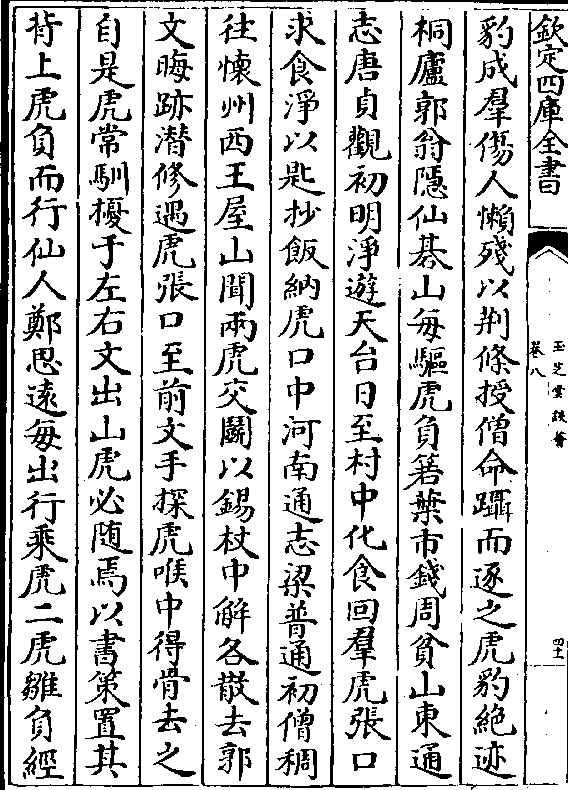 欽定四庫全書
玉芝堂談薈
卷八
四十一
豹成羣傷人懶殘以荆條授僧命躡而逐之虎豹絶迹
桐廬郭翁隱仙碁山每驅虎負箬葉市錢周貧山東通
志唐貞觀初明淨遊天台日至村中化食回羣虎張口
求食淨以匙抄飯納虎口中河南通志梁普通初僧稠
往懷州西王屋山聞兩虎交鬬以錫杖中解各散去郭
文晦跡潛修遇虎張口至前文手探虎喉中得骨去之
自是虎常馴擾于左右文出山虎必随焉以書策置其
背上虎負而行仙人鄭思遠每出行乘虎二虎雛負經